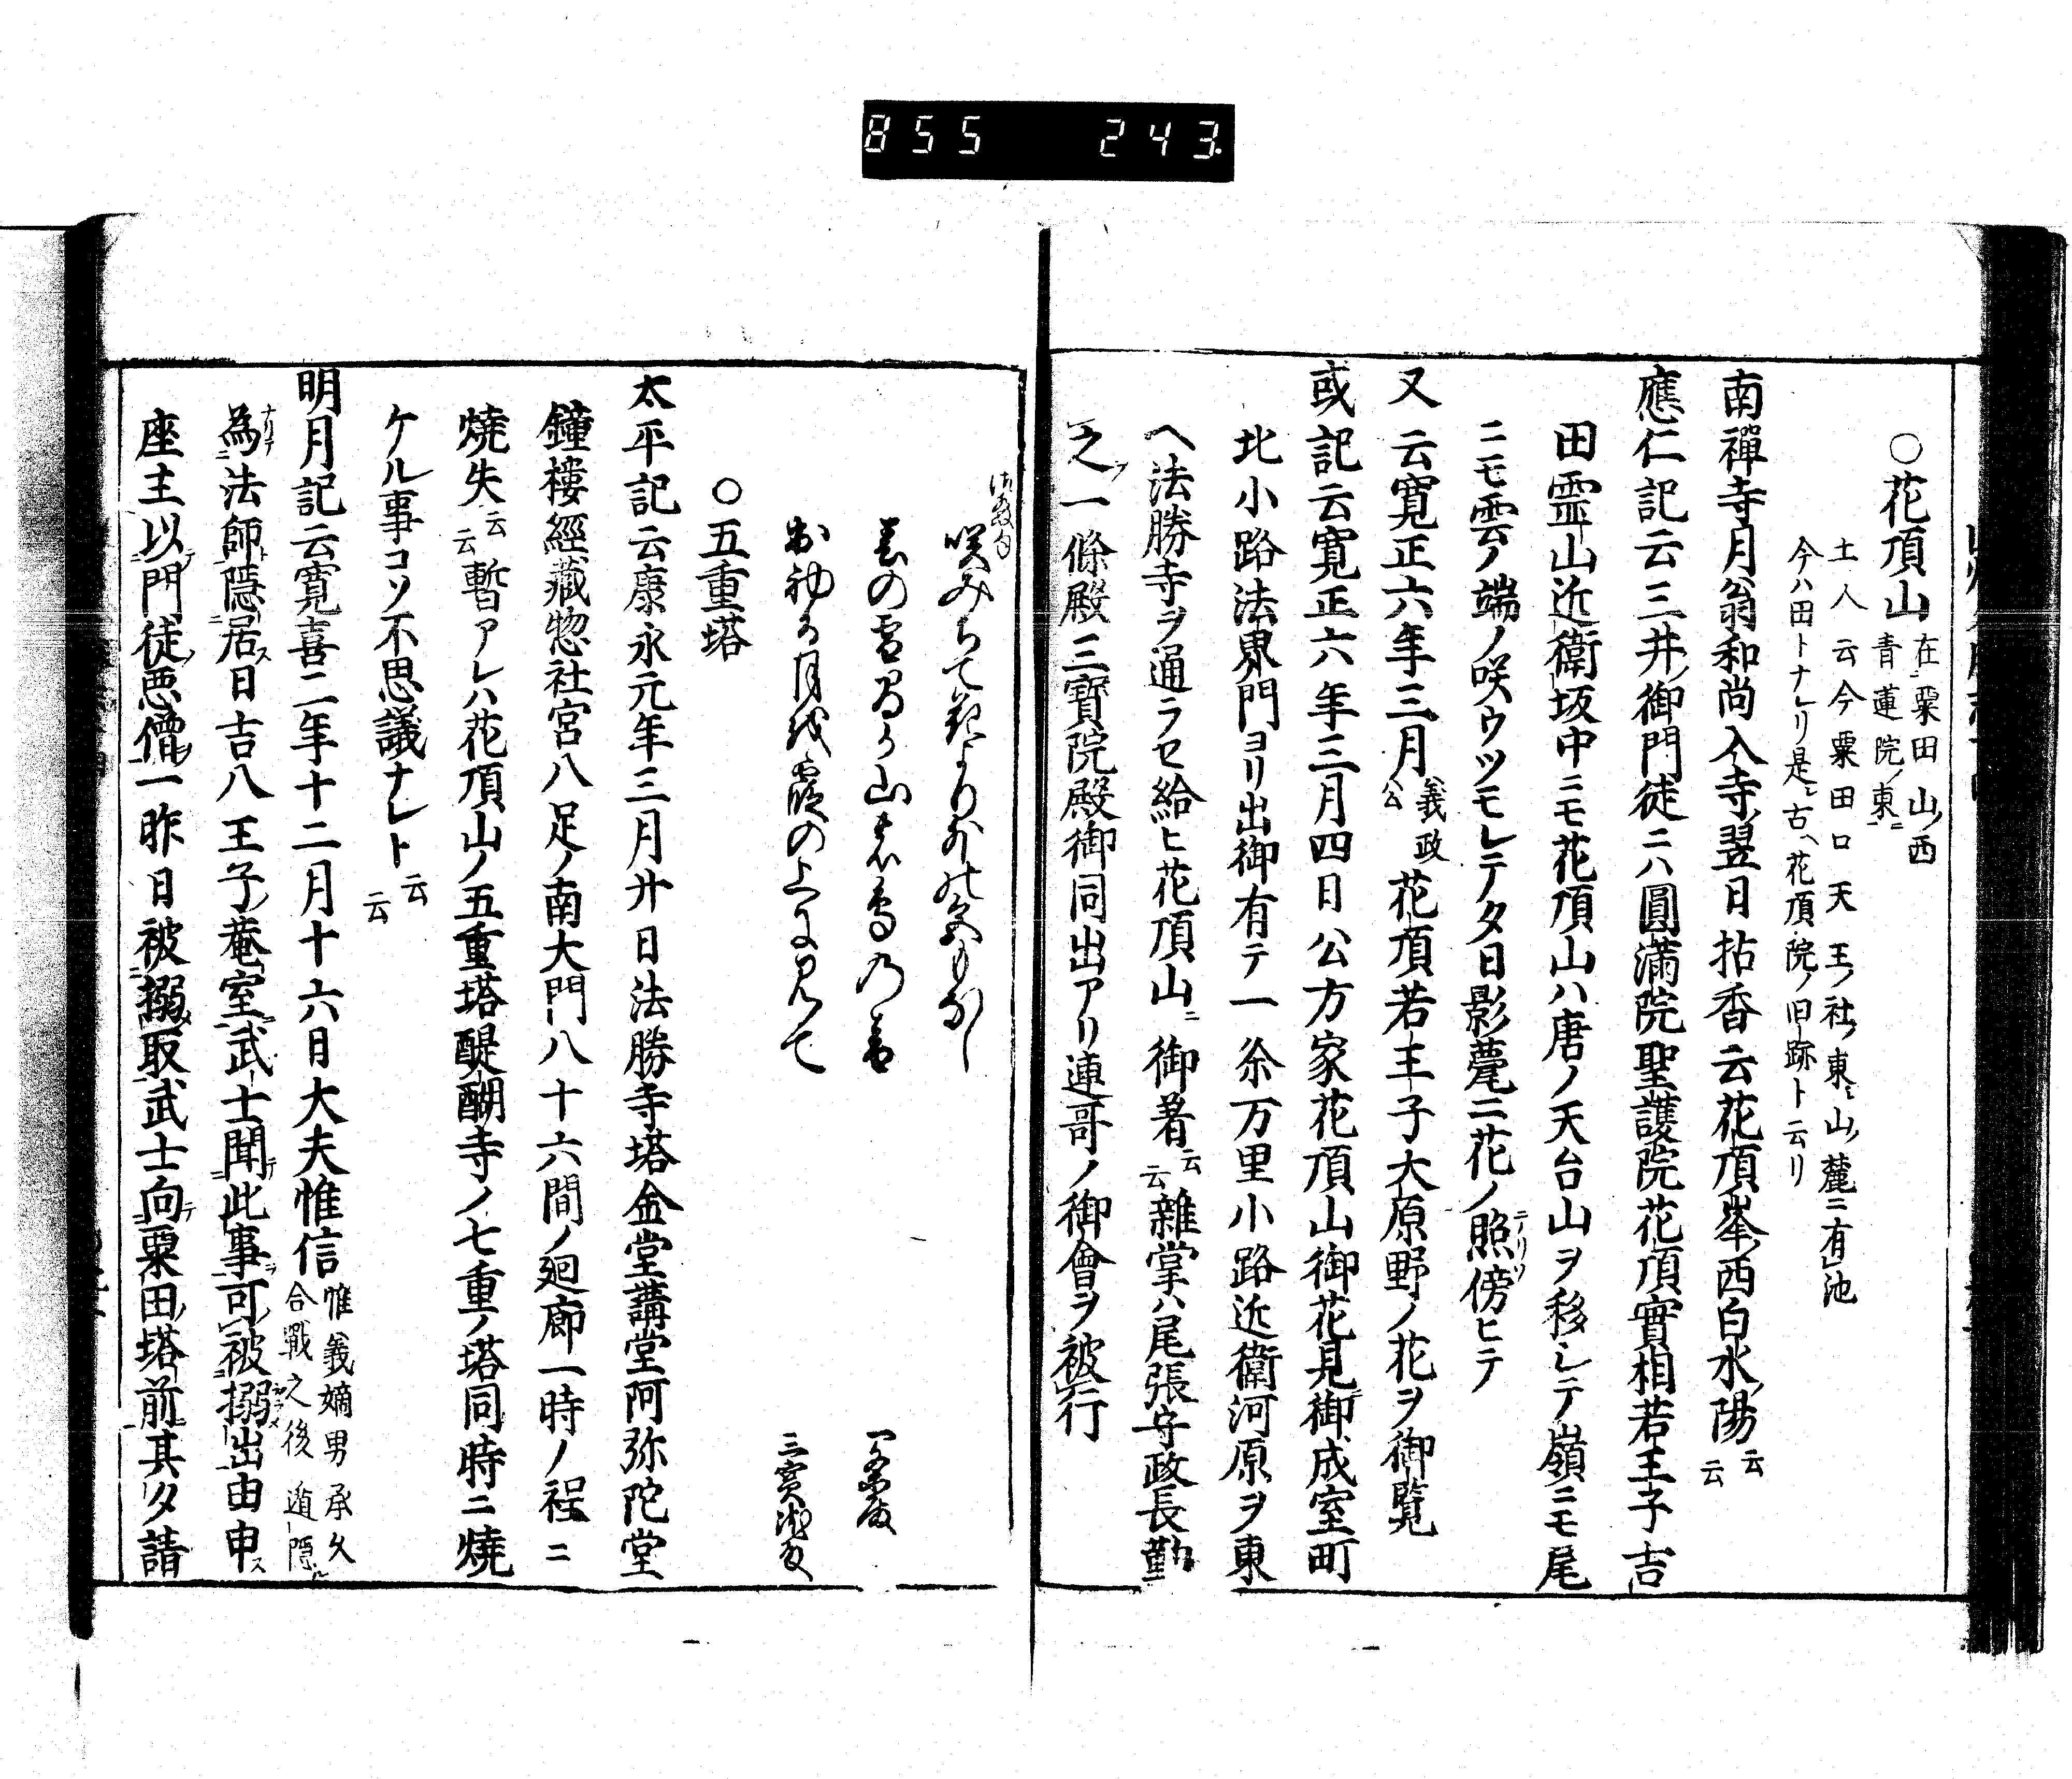 855 243
○花頂山
在粟田山ノ西
青蓮院ノ東ニ
土人云今粟田口天王ノ社ノ東ニ山ノ麓ニ有池
今ハ田トナレリ是ニ古ヘ花頂院ノ旧跡ト云リ
南禪寺月翁和尚入寺ノ翌日拈香云花頂峯西白水陽云云
應仁記云三井ノ御門徒ニハ圓滿院聖護院花頂實相若王子吉
田霊山近衛坂中ニモ花頂山ハ唐ノ天台山ヲ移シテ嶺ニモ尾
ニモ雲ノ端ノ咲ウツモレテ夕日影薨ニ花ノ照傍ヒテ
又云寛正六年三月義政公花頂若王子大原野ノ花ヲ御覧
或記云寛正六年三月四日公方家花頂山御花見御成室町
北小路法界門ヨリ出御有テ一条万里小路近衛河原ヲ東
ヘ法勝寺ヲ通ラセ給ヒ花頂山ニ御着云云雜掌ハ尾張守政長勤
之一條殿三寶院殿御同出アリ連哥ノ御會ヲ被行
咲みちて花より外の色もなし
一条殿
月は霞の上に見て
三寳院殿
○五重塔
太平記云康永元年三月廿日法勝寺塔金堂講堂阿弥陀堂
鐘樓經藏惣社宮八足ノ南大門八十六間ノ廻廊一時ノ程ニ
燒失云云暫アレハ花頂山ノ五重塔醍醐寺ノ七重ノ塔同時ニ燒
ケル事コソ不思議ナレト云云
明月記云寛喜二年十二月十六日大夫惟信惟義嫡男承久合戰之後遁隠
為法師隠居ス日吉八王子ノ菴室武士聞此事可被搦出由申ス
座主以門徒悪僧一昨日被搦取武士向粟田塔前其夕請